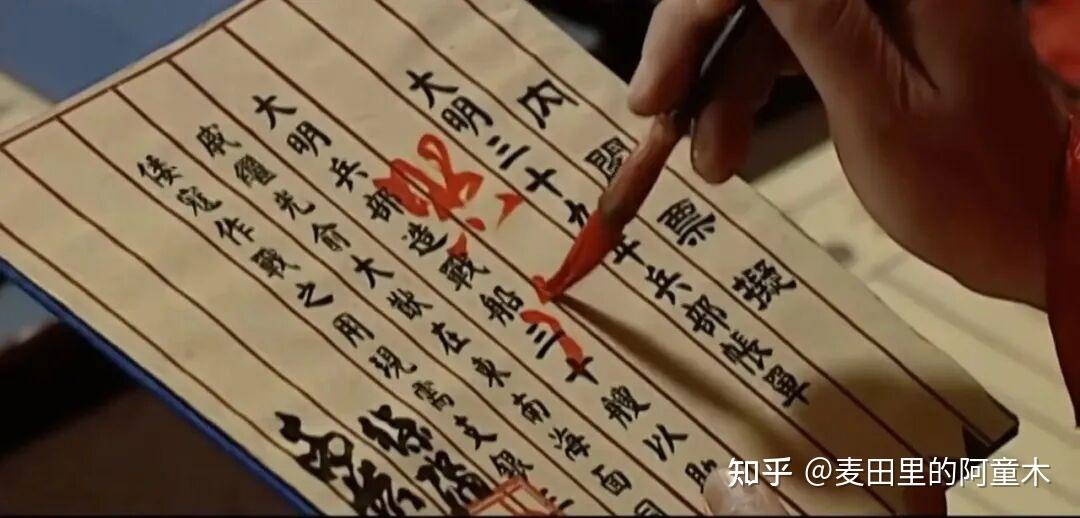 內閣票擬
大明三十九年兵部帳單
大明兵部造戰船三十艘以
戚繼光俞大猷在東南海面同
倭寇作戰之用現需支銀
知乎 @麦田里的阿童木